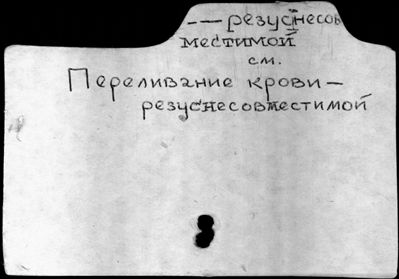 -— резуснесов
местимой
см.
Переливание крови —
резуснесовместимой